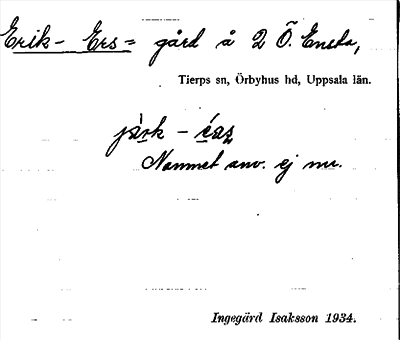 Erik-Ers= gård å 2 Ö. Ensta,
Tierps sn, Örbyhus hd, Uppsala län.
Namnet anv. ej nu.
Ingegärd Isaksson 1934.